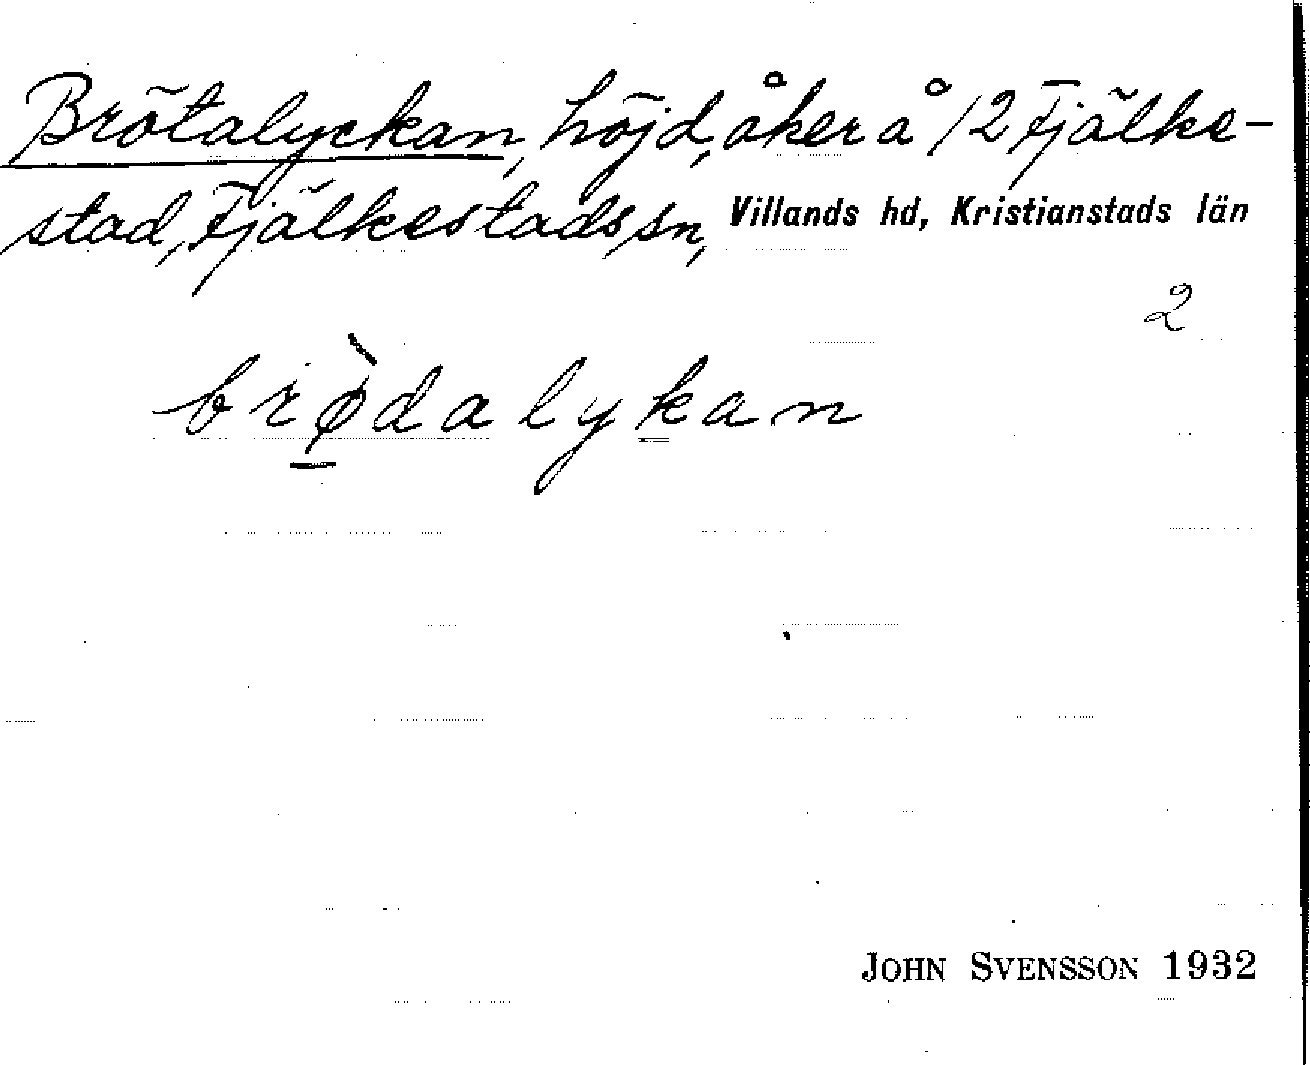 Brötalyckan, höjd, åker å /2 Fjälke-
stad, Fjälkestads sn, Villands hd, Kristianstads län
2
brø̀dalykan
JOHN SVENSSON 1932